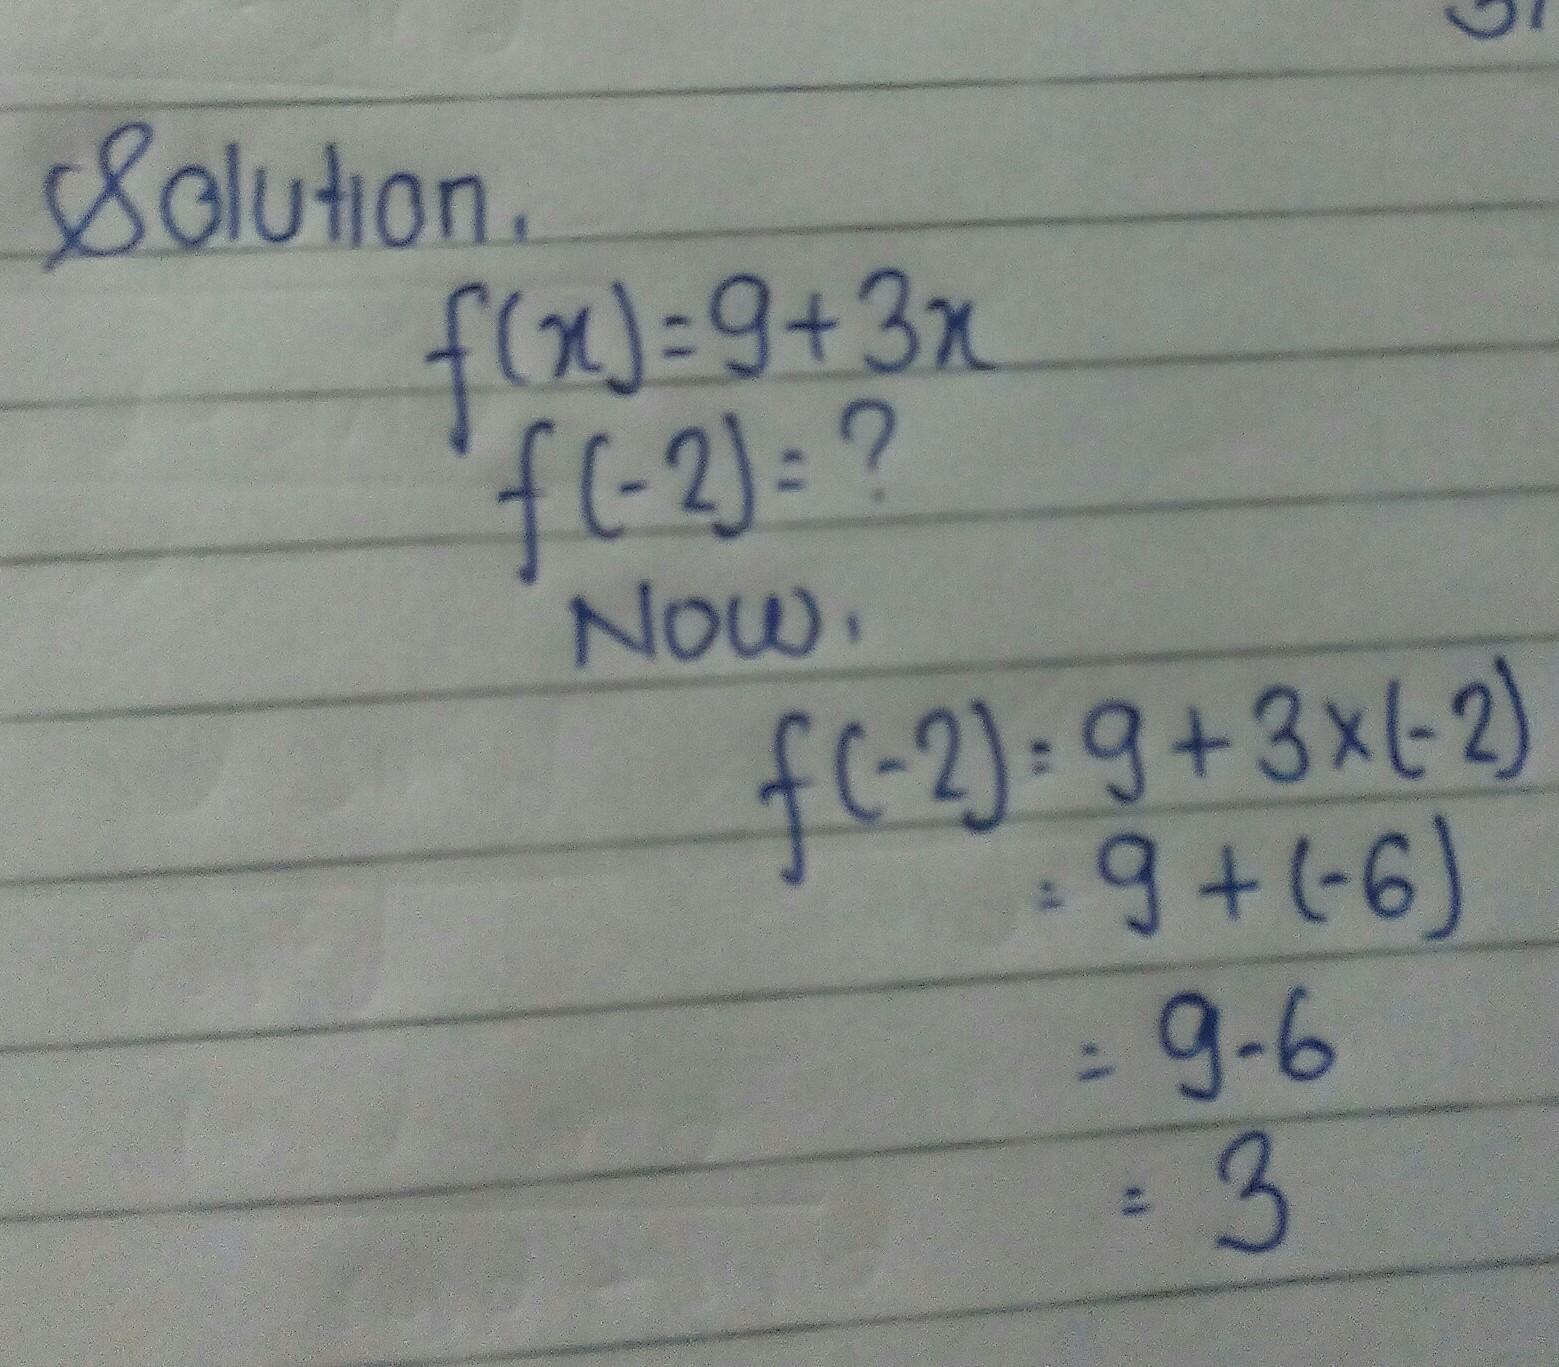 Solution,
f(x)=9+3x
f(-2)=?
Now,
f(-2)=9+3×(-2)
=9+(-6)
=9-6
=3